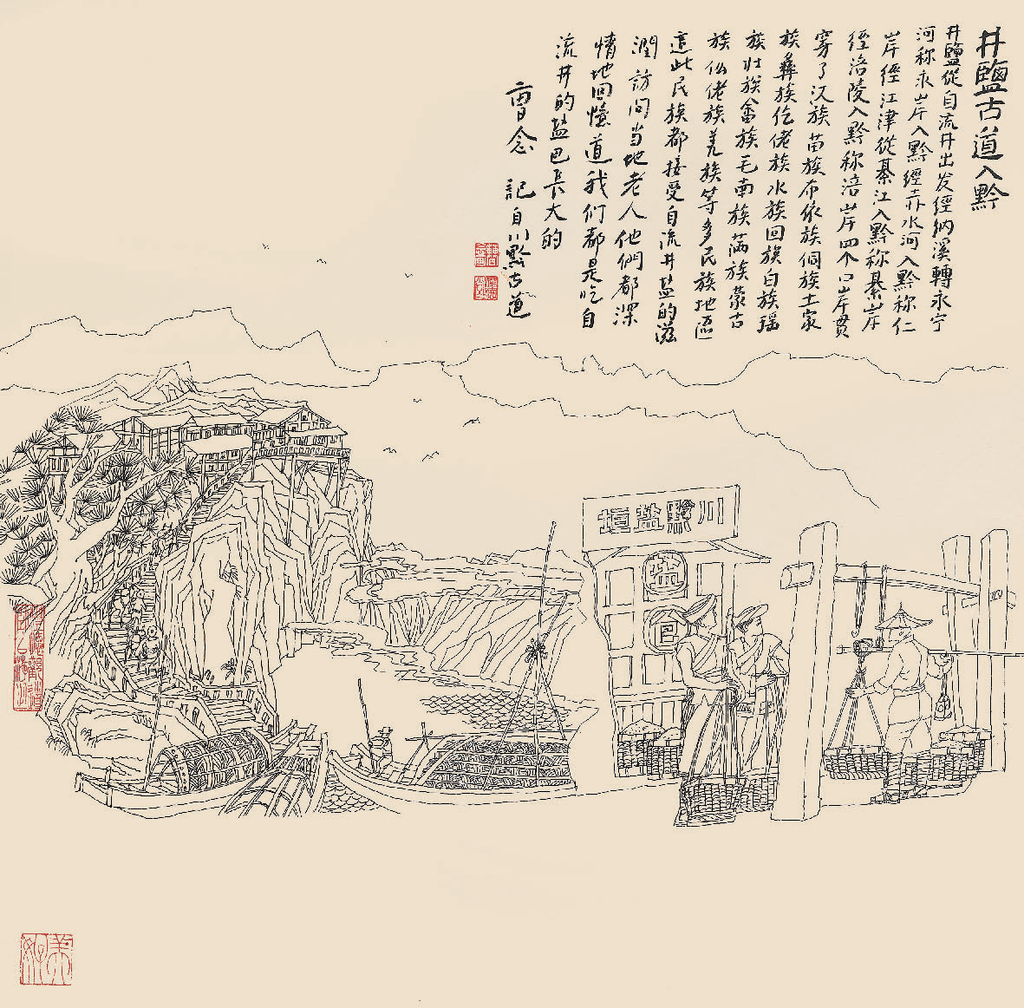 井鹽古道入黔
井鹽從自流井出发經纳溪轉永宁
河称永岸入黔經赤水河入黔称仁
岸經江津從綦江入黔称綦岸
經涪陵入黔称涪岸四个口岸贯
穿了汉族苗族布依族侗族土家
族彝族仡佬族水族回族白族瑶
族壮族畲族毛南族满族蒙古
族仫佬族羌族等多民族地區
這些民族都接受自流井盐的滋
潤訪问当地老人他們都深
情地回憶道我们都是吃自
流井的盐巴長大的
曹念 記自川黔古道
川黔盐埧
盐